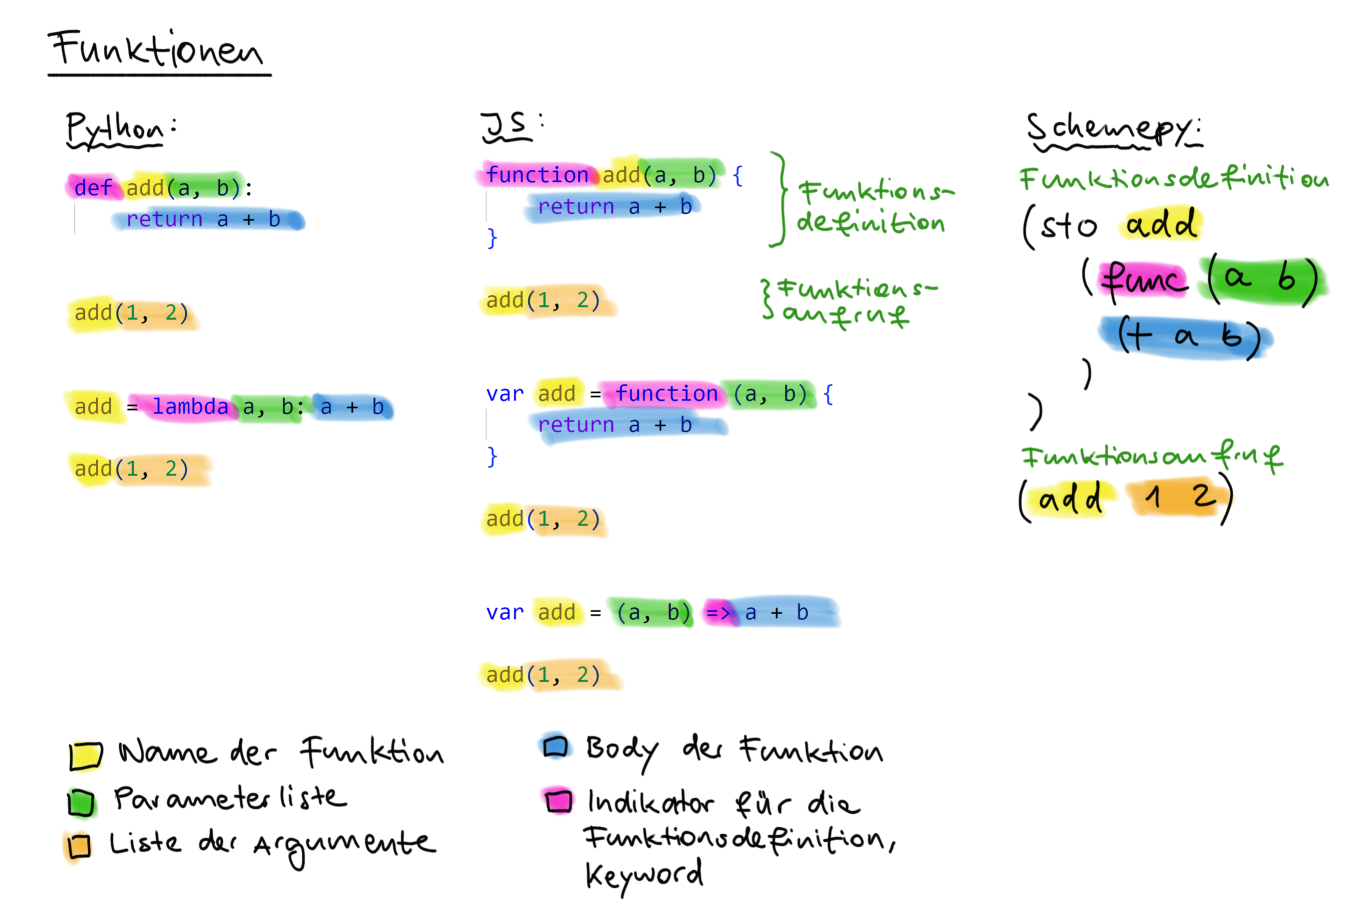 Funktionen
Python:
def add(a, b):
return a + b
add(1, 2)
add = lambda a, b: a + b
add(1, 2)
JS:
function add(a, b) {
return a + b
}
Funktions-
definition
add(1, 2)
Funktions-
aufruf
var add = function (a, b) {
return a + b
}
add(1, 2)
var add = (a, b) => a + b
add(1, 2)
Schemepy:
Funktionsdefinition
(sto add
(func (a b)
(+ a b)
)
)
Funktionsaufruf
(add 1 2)
Name der Funktion
Parameterliste
Liste der Argumente
Body der Funktion
Indikator für die
Funktionsdefinition,
Keyword